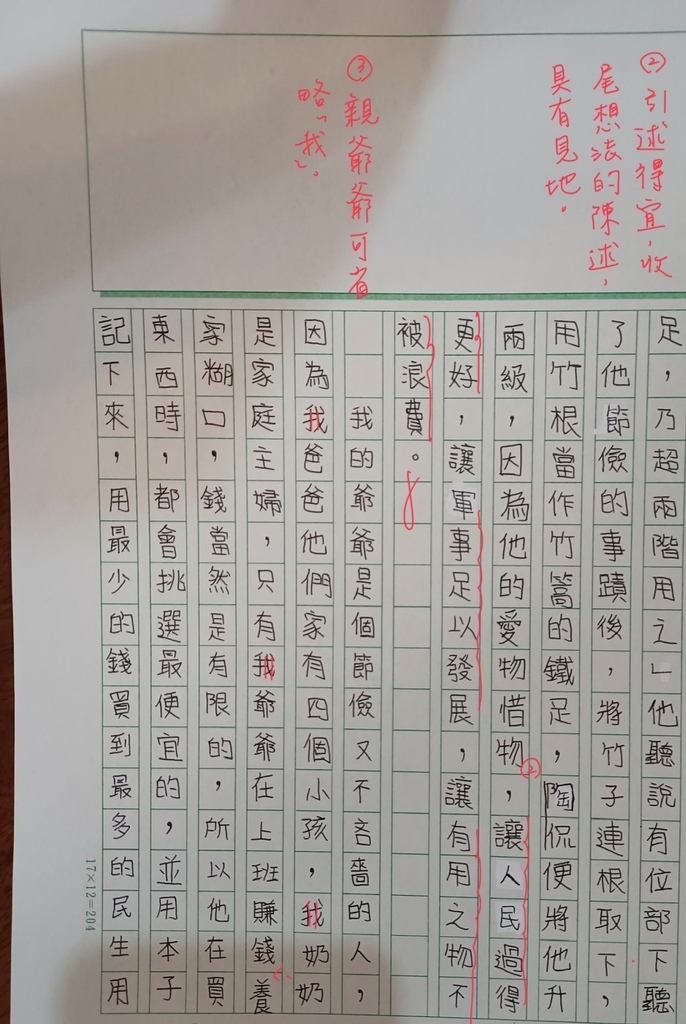 ②引述得宜,收
尾想法的陳述,
具有見地。
③親爺爺可省
略「我」。
足,乃超兩階用之」他聽說有位部下聽
了他節儉的事蹟後,將竹子連根取下,
用竹根當作竹篙的鐵足,陶侃便將他升
兩級,因為他的愛物惜物,讓人民過得
②
更好,讓軍事足以發展,讓有用之物不
被浪費。
我的爺爺是個節儉又不吝嗇的人,
因為我爸爸他們家有四個小孩,我奶奶
是家庭主婦,只有我爺爺在上班賺錢養
家糊口,錢當然是有限的,所以他在買
東西時,都會挑選最便宜的,並用本子
記下來,用最少的錢買到最多的民生用
17×12=204